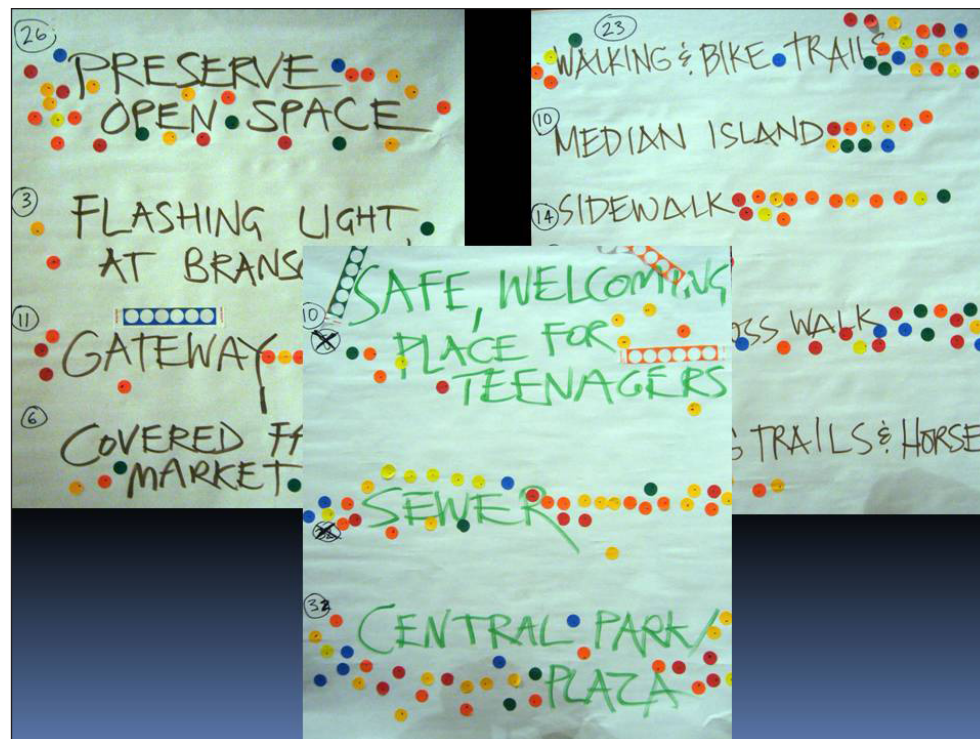 26
PRESERVE
OPEN SPACE
3
FLASHING LIGHT,
AT
11
GATEWAY
6
COVERED
MARKET
23
WALKING & BIKE TRAILS
10
MEDIAN ISLAND
14 SIDEWALK
WALK
TRAILS & HORSE
10
SAFE, WELCOMING
PLACE FOR
TEENAGERS
SEWER
32
CENTRAL PARK/
PLAZA